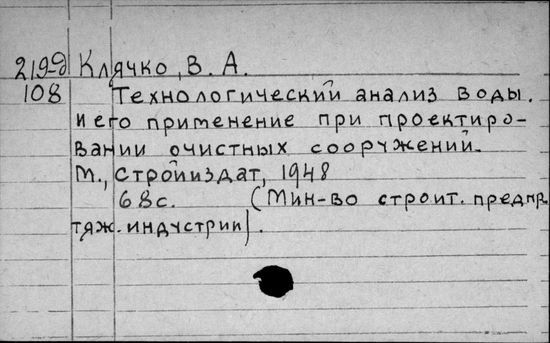 219-д Клячко, В. А.
108 Технологический анализ воды.
и его применение при проектиро-
вании очистных сооружений.
М., Стройиздат, 1948
68с. (Мин-во строит. предпр.
тяж. индустрии).